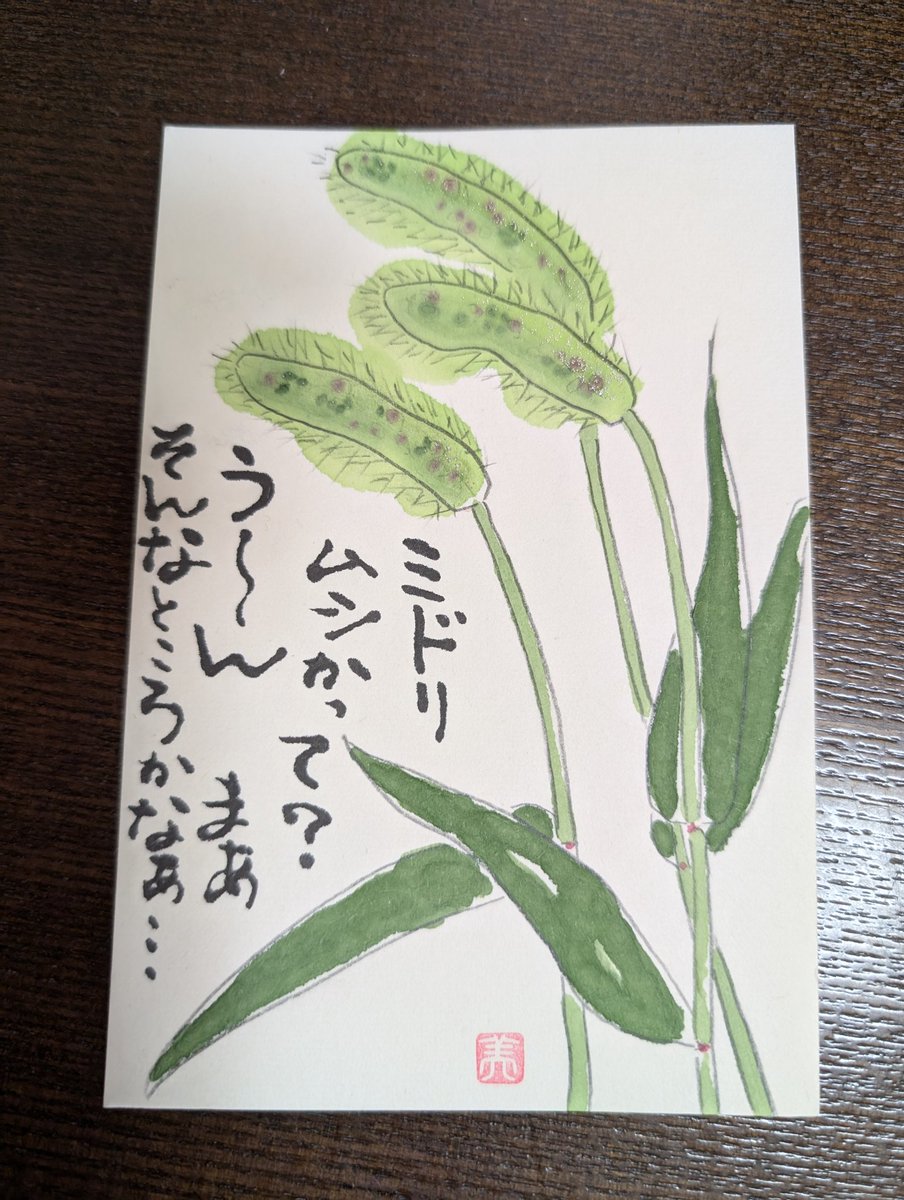 ミドリ
ムシかって?
う〜ん まあ
そんなところかなぁ…
美